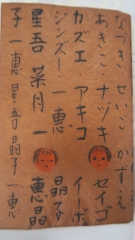 なつき せいご かずえ
あきこ ナツキ セイゴ
カズエ アキコ イーボ
ジンズー 一恵 晶子
星吾 菜月 一恵 晶
子 一恵 星吾 晶子 一恵